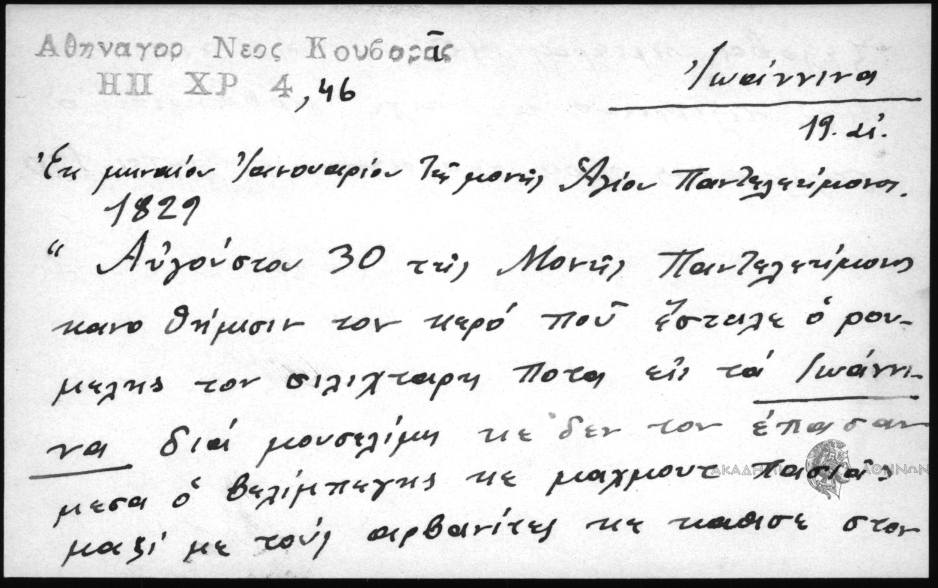 Αθηναγορ Νεος Κουβαρᾶς
ΗΠ ΧΡ 4, 46
Ἰωάννινα
19. αἰ.
Ἐκ μηναίου Ἰανουαρίου τῆς μονῆς Ἁγίου Παντελεήμονος.
1829
“ Αὐγούστου 30 τῆς Μονῆς Παντελεήμονος
κανο θήμισιν τον κερό ποῦ ἔστιλε ὁ ρου-
μελης τον σιλιχταρη ποτα εἰς τά Ἰωάννι-
να διά μουσελίμη κε δεν τον ἔπασαν
μεσα ὁ βελίμπεγης κε μαχμουτ πασιᾶς
μαζί με τούς αρβανίτες κε καθισε στον
ΑΚΑΔΗΜΙΑ ΑΘΗΝΩΝ